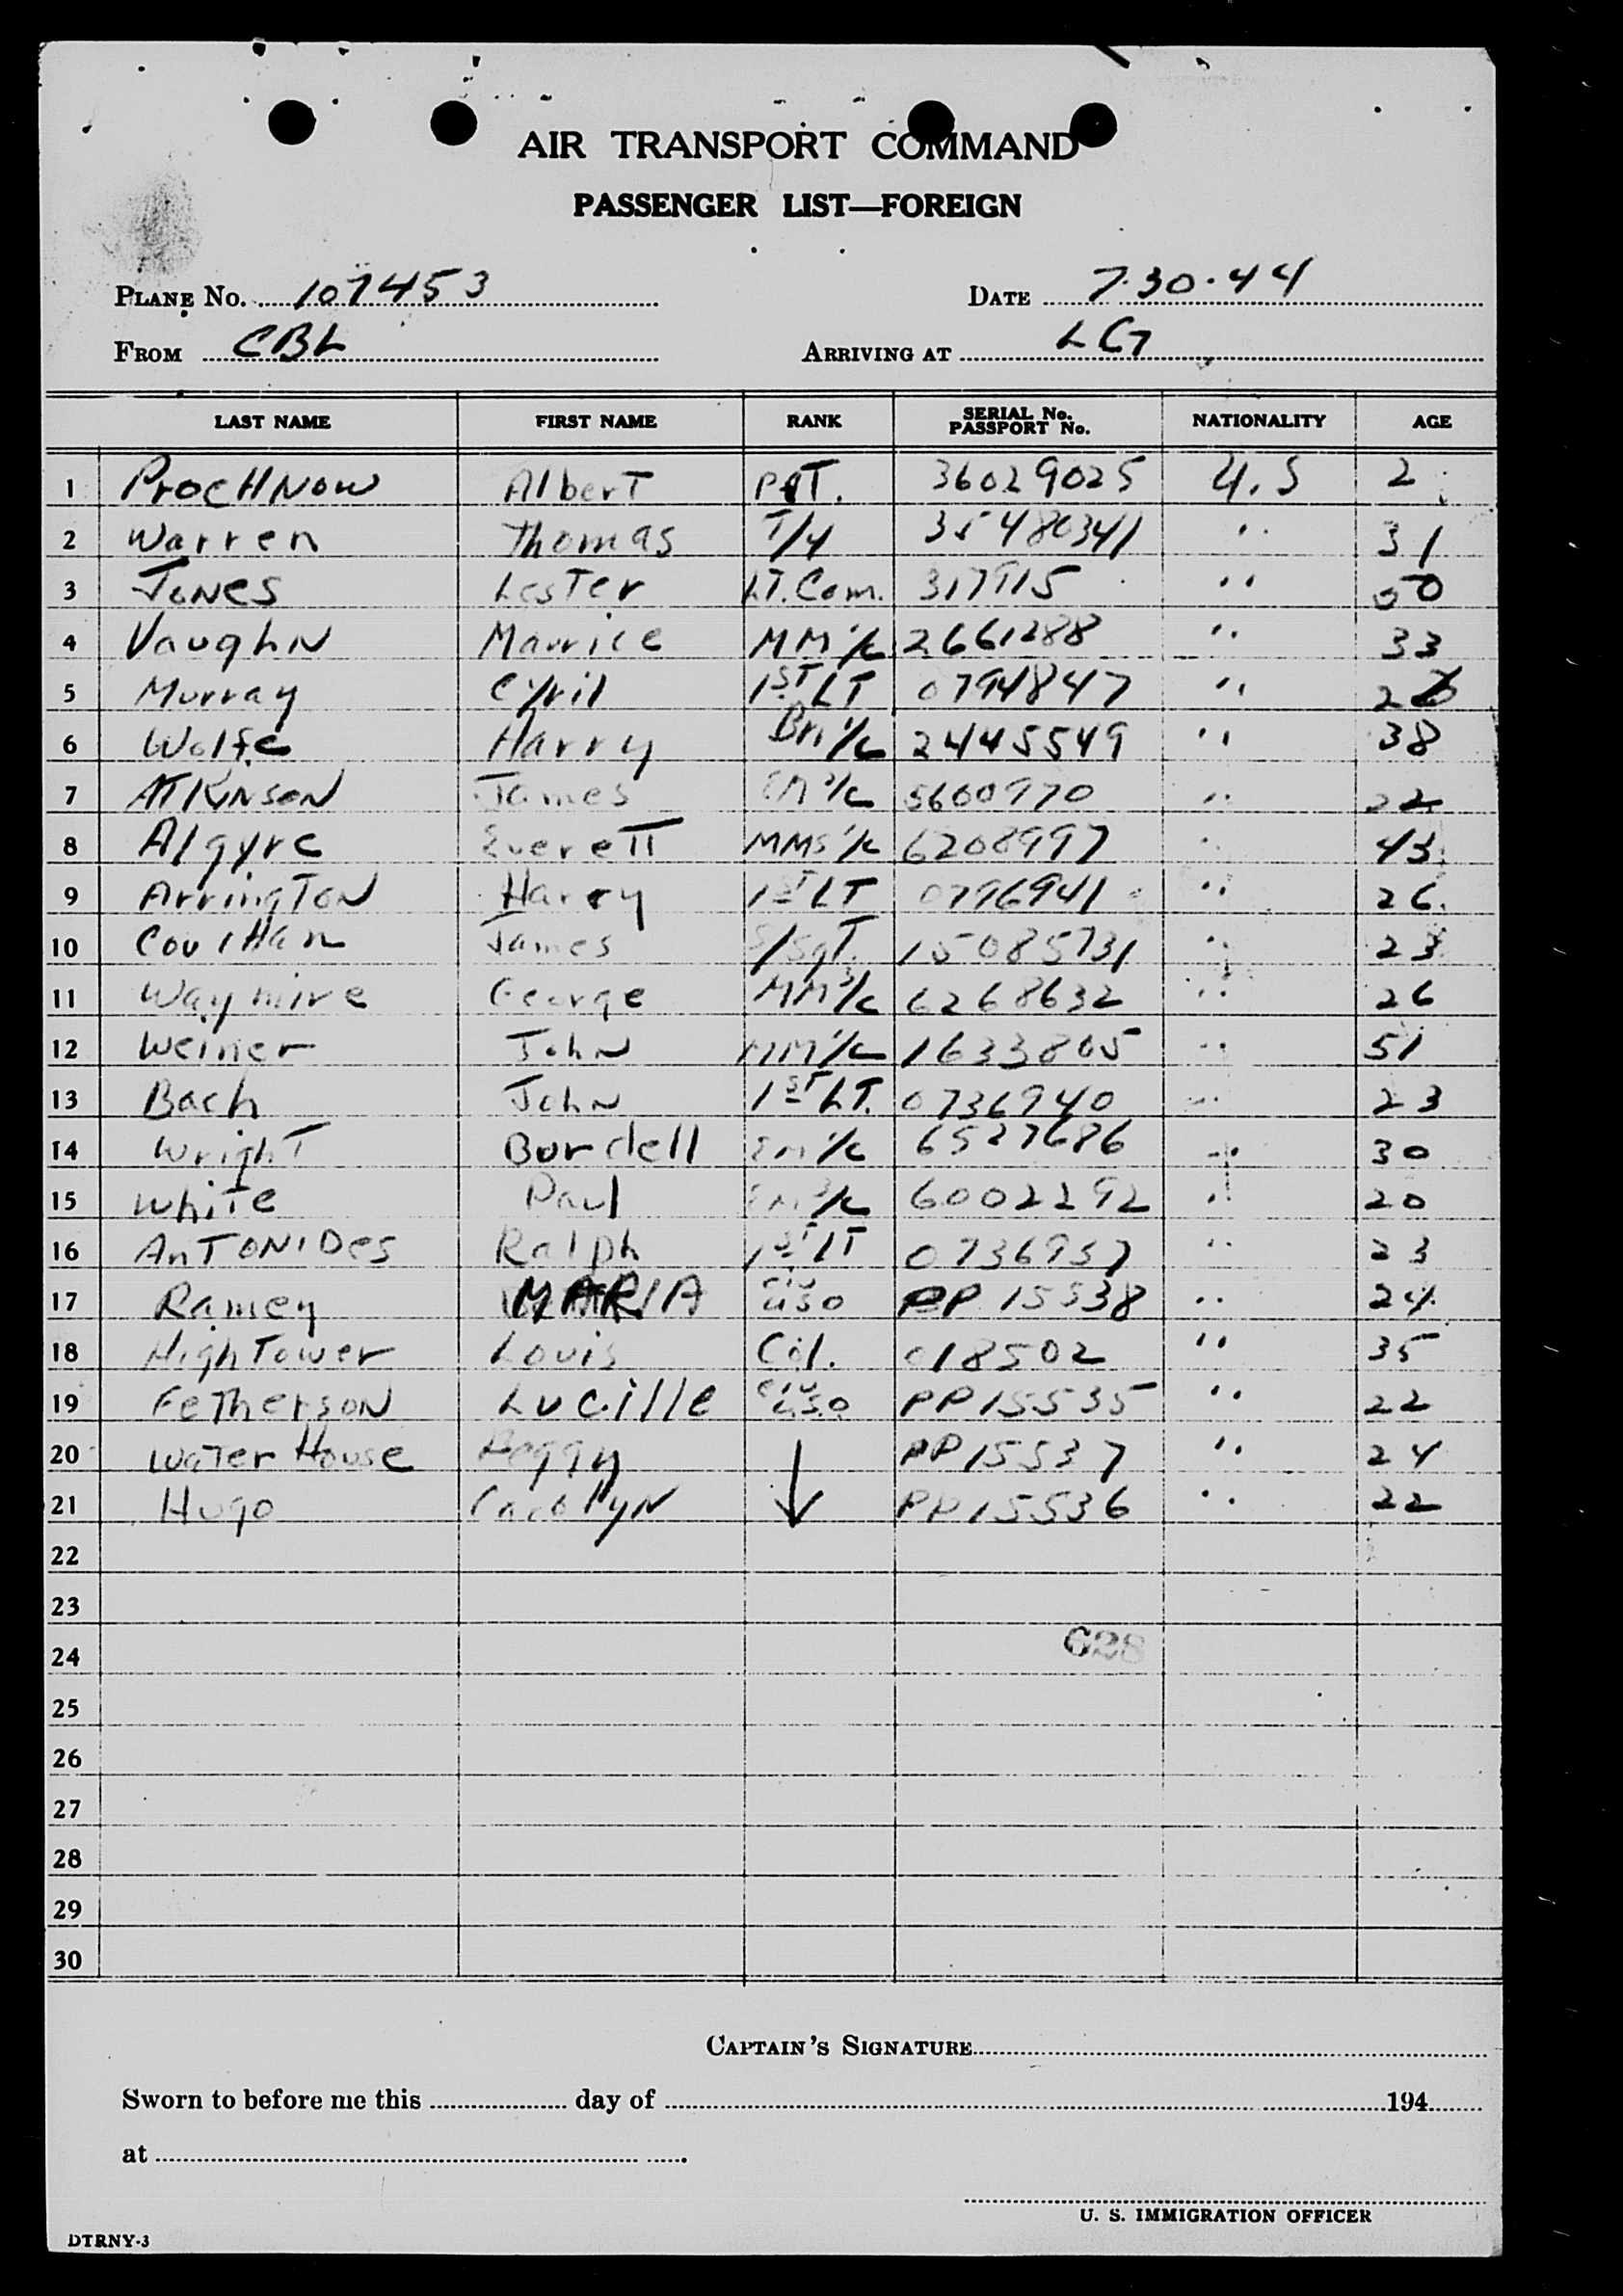 AIR TRANSPORT COMMAND
PASSENGER LIST—FOREIGN
PLANE No. 107453 DATE 7.30.44
FROM CBL ARRIVING AT LG
LAST NAME FIRST NAME RANK SERIAL No. PASSPORT No. NATIONALITY AGE
1 ProcHNow AlberT 36029025 U.S
2 Warren Thomas T/4 35480341 " 31
3 JoNes LesTer LT. Com. 317915 " 50
4 VaughN Maurice MM 1/c 2661288 " 33
5 Murray Cyril 1ST LT "
6 Wolfe Harry 2445549 " 38
7 ATKiNsoN James 5600970 " 22
8 Algyre EvereTT 6208997 " 43
9 ArringToN Harry 1ST LT 0796941 " 26
10 James S/SgT. 15085731 " 23
11 Waymire George MM 3/c 6268632 " 26
12 Weiner JohN MM 1/c 1633805 " 51
13 Bach JohN 1ST LT. 0736940 " 23
14 WrighT Burdell 6527686 " 30
15 WhiTe Paul 6002292 " 20
16 AnTONiDes Ralph 1ST LT 0736957 " 23
17 Ramey MARIA Civ USO PP 15538 " 24
18 HighTower Louis Col. 018502 " 35
19 FeThersoN Lucille Civ USO PP15535 " 22
20 WaTer House Peggy PP15537 " 24
21 Hugo CarolyN PP15536 " 22
22
23
24 628
25
26
27
28
29
30
CAPTAIN'S SIGNATURE
Sworn to before me this day of 194
at
U. S. IMMIGRATION OFFICER
DTRNY-3